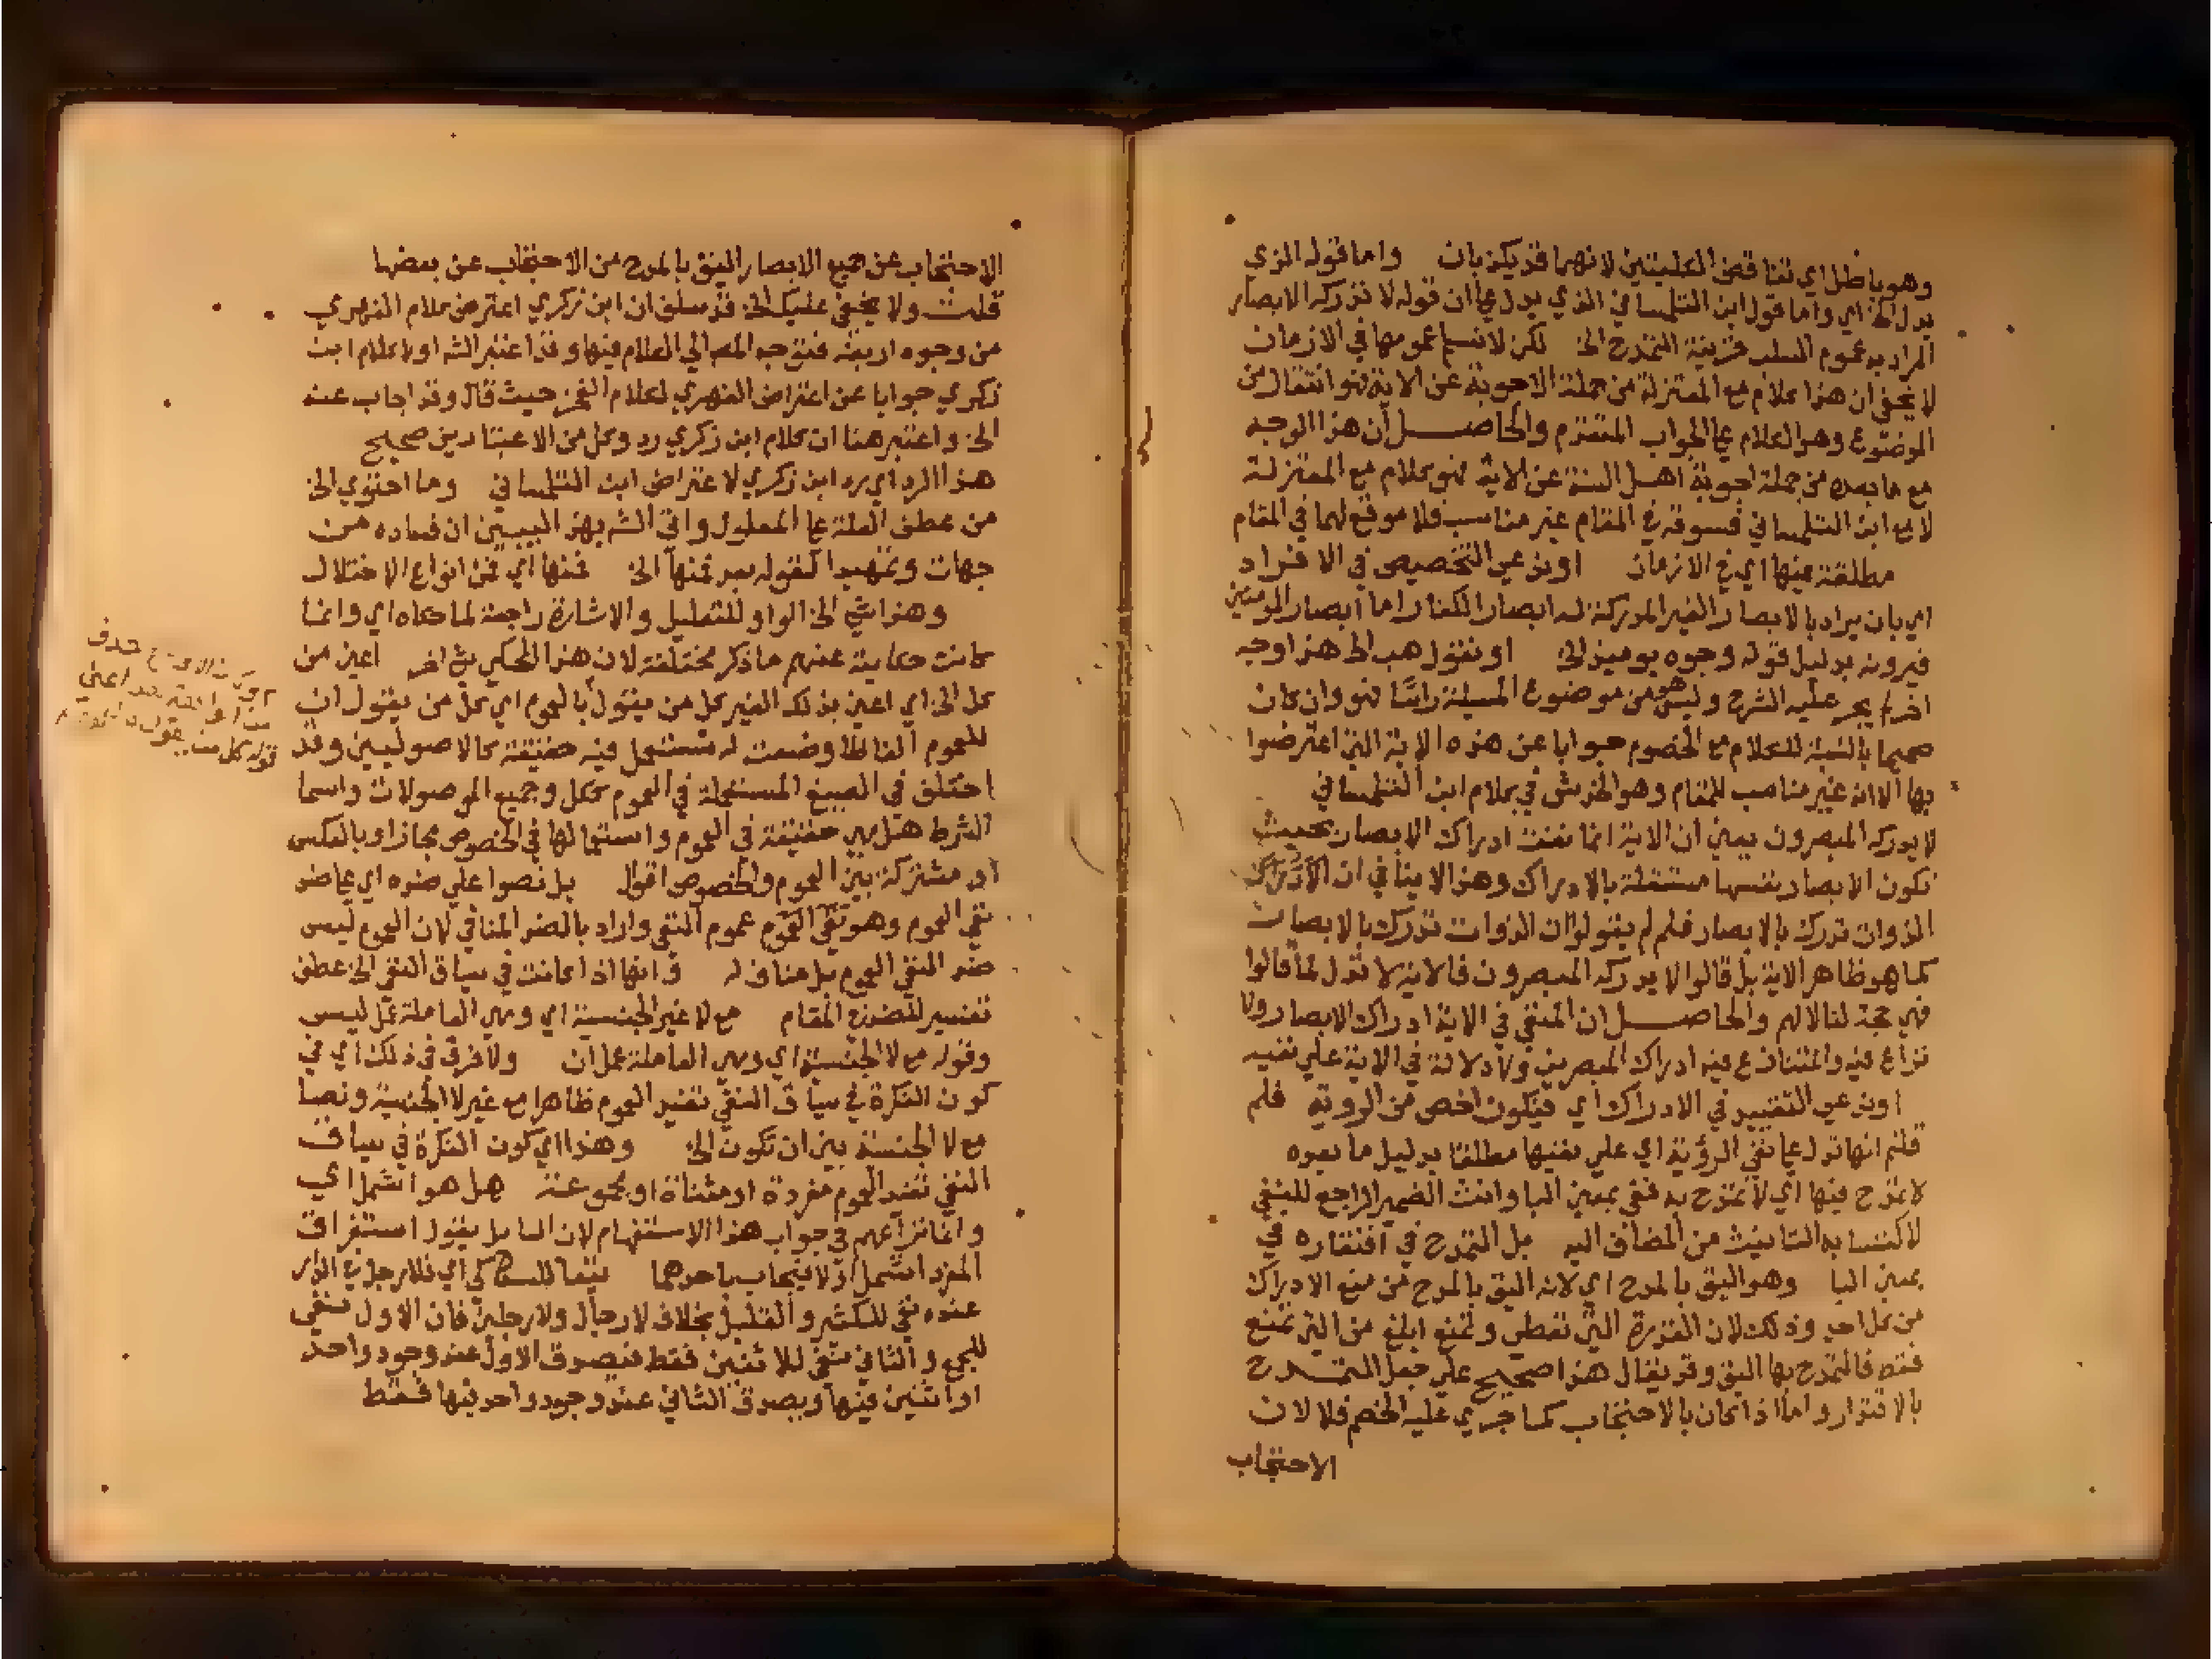 وهو باطل اي تناقض الكليتين لانهما قد يكذبان واما قوله الذي
يدل الخ اي واما قول ابن التلمساني الذي يدل على ان قوله لا تدركه الابصار
المراد به عموم السلب قرينة التمدح الخ لكن لا نسلم عمومها في الازمان
لا يخفى ان هذا كلام مع المعتزلة من جملة الاجوبة عن الاية فهو انتقال من
الموضوع وهو الكلام على الجواب المتقدم والحاصل ان هذا الوجه
مع ما بعده من جملة اجوبة اهل السنة عن الاية فهو كلام مع المعتزلة
لا مع ابن التلمساني فسوقه في المقام غير مناسب فلا موقع لهما في المقام
مطلقة فيها اي في الازمان او ندعي التخصيص في الافراد
اي بان يراد بالابصار الغير المدركة له ابصار الكفار اما ابصار المومنين
فيرونه بدليل قوله وجوه يوميذ الخ او نقول هب الخ هذا وجه
اخر يجر عليه الشرح وليس هو من موضوع المسيلة راسا فهو وان كان
صحيحا بالنسبة للكلام مع الخصوم جوابا عن هذه الاية التي اعترضوا
بها الا انه غير مناسب للمقام وهو الخدش في كلام ابن التلمساني
لا يدركه المبصرون يعني ان الاية انما نفت ادراك الابصار بحيث
تكون الابصار بنفسها مستقلة بالادراك وهذا لا ينافي ان
الذوات تدرك بالابصار فلم لم يقولوا ان الذوات تدرك بالابصار
كما هو ظاهر الاية بل قالوا لا يدركه المبصرون فالاية لا تدل لما قالوا
فهي حجة لنا لا لهم والحاصل ان المنفي في الاية ادراك الابصار ولا
نزاع فيه والمتنازع فيه ادراك المبصرين ولا دلالة في الاية على نفيه
او ندعي التقييد في الادراك اي فيكون اخص من الروية فلم
قلتم انها تدل على نفي الرؤية اي على نفيها مطلقا بدليل ما بعده
لا تمدح فيها اي لا تمدح به ففي بمعنى البا وانث الضمير الراجع للنفي
لاكتسابه التانيث من المضاف اليه بل التمدح في اقتداره في
بمعنى البا وهو اليق بالمدح اي لانه اليق بالمدح من منع الادراك
من كل احد وذلك لان القدرة التي تعطي وتمنع ابلغ من التي تمنع
فقط فالتمدح بها اليق وقد يقال هذا صحيح على جعل التمدح
بالاقتدار واما اذا كان بالاحتجاب كما جري عليه الخصم فلا لان
الاحتجاب
الاحتجاب عن جميع الابصار اليق بالمدح من الاحتجاب عن بعضها
قلت ولا يخفى عليك الخ قد سلف ان ابن زكري اعترض كلام الفهري
من وجوه اربعة فتوجه المص الي الكلام فيها وقد اعتبر الشه اولا كلام ابن
زكري جوابا عن اعتراض الفهري لكلام الفخر حيث قال وقد اجاب عنه
الخ واعتبر هنا ان كلام ابن زكري رد وكل من الاعتبارين صحيح
هذا الرد اي رد ابن زكري لاعتراض ابن التلمساني وما احتوي الخ
من عطف العلة على المعلول وافي الشه بهذ السبيين ان فساده من
جهات وتمهيدا لقوله بعد فمنها الخ فمنها اي فمن انواع الاختلال
وهذا شي الخ الواو للتعليل والاشارة راجعة لما حكاه اي وانما
كانت حكاية عنهم ما ذكر مختلقة لان هذا المحكي شي اخر اعني من
كل الخ اي اعني بذلك الغير كل من يقول بالعموم اي كل من يقول ان
للعموم الفاظا وضعت له تستعمل فيه حقيقة كالاصوليين وقد
اختلف في الصيغ المستعملة في العموم ككل وجميع الموصولات واسما
الشرط هل هي حقيقة في العموم واستعمالها في الخصوص مجاز او بالعكس
او مشتركة بين العموم والخصوص اقوال بل نصوا على ضده اي على ضد
نفي العموم وهو عموم النفي واراد بالضد المنافي لان العموم ليس
ضد النفي العموم بل مناف له وانها اذا كانت في سياق النفي الخ عطف
تفسير للضد في المقام مع لا غير الجنسية اي وهي العاملة عمل ليس
وقوله مع لا الجنسية اي وهي العاملة عمل ان ولا فرق في ذلك اي في
كون النكرة في سياق النفي تفيد العموم ظاهرا مع غير لا الجنسية ونصا
مع لا الجنسية بين ان تكون الخ وهذا اي كون النكرة في سياق
النفي تفيد العموم مفردة او مثناة او مجموعة هل هو اشمل اي
وانما نزاعهم في جواب هذا الاستفهام لان السايل يقول استغراق
المفرد اشمل او لا فيجاب باحدهما تبعا للسكاكي اي فلا رجل في الدار
عنده نفي للكثير والقليل بخلاف لا رجال ولا رجلين فان الاول نفي
للجمع والثاني نفي للاثنين فقط فيصدق الاول عند وجود واحد
او اثنين فيها ويصدق الثاني عند وجود واحد فيها فقط